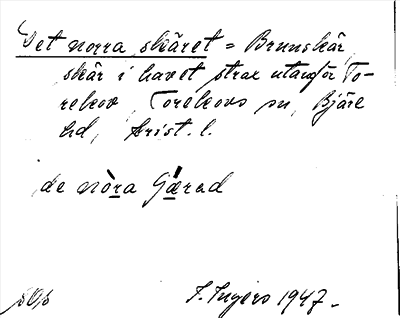 Det norra skäret = Brunskär,
skär i havet strax utanför To-
rekov, Torekovs sn, Bjäre
hd, Krist. l.
de nòra
S. Ingers 1947.